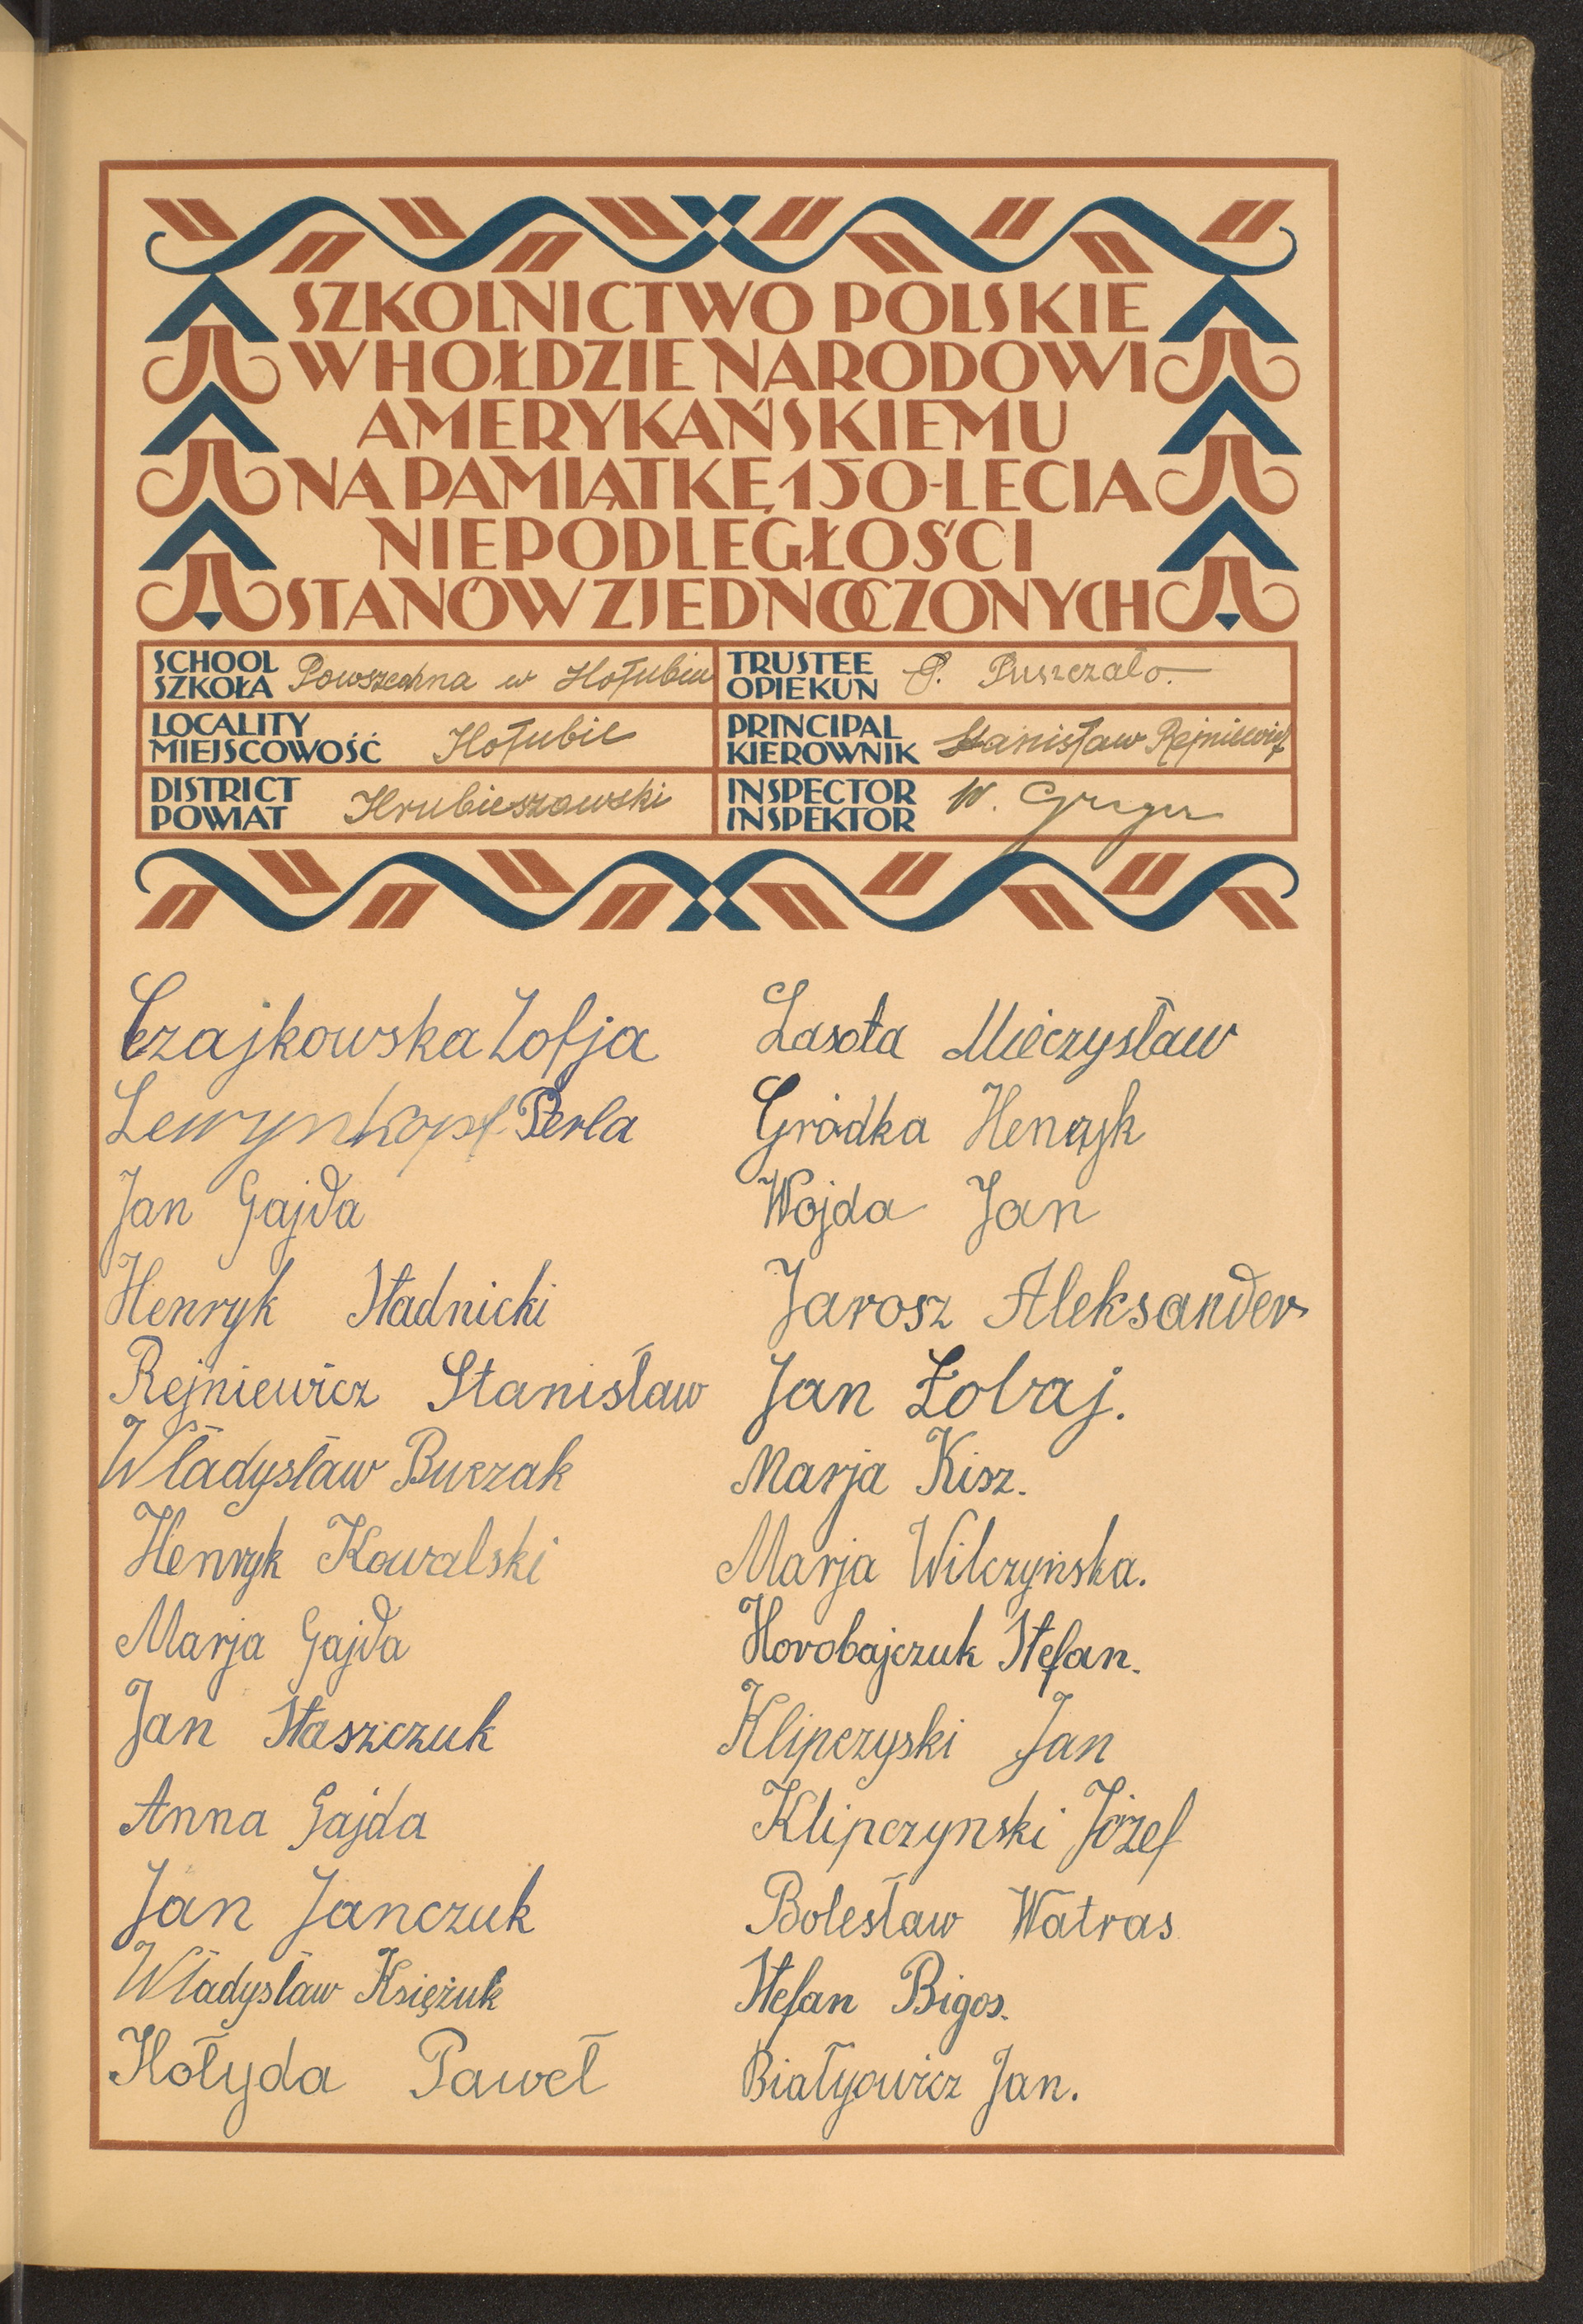 SZKOLNICTWO POLSKIE
W HOŁDZIE NARODOWI
AMERYKAŃSKIEMU
NA PAMIĄTKĘ 150-LECIA
NIEPODLEGŁOŚCI
STANÓW ZJEDNOCZONYCH
SCHOOL
SZKOŁA Powszechna w Hołubiu
LOCALITY
MIEJSCOWOŚĆ Hołubie
DISTRICT
POWIAT Hrubieszowski
TRUSTEE
OPIEKUN P. Puszczało.
PRINCIPAL
KIEROWNIK Stanisław Rejniewicz
INSPECTOR
INSPEKTOR W.
Czajkowska Zofja
Lewynkopf Perla
Jan Gajda
Henryk Stadnicki
Rejniewicz Stanisław
Władysław Burzak
Henryk Kowalski
Marja Gajda
Jan Staszczuk
Anna Gajda
Jan Janczuk
Władysław Księżuk
Hołyda Paweł
Lasota Mieczysław
Gródka Henryk
Wojda Jan
Jarosz Aleksander
Jan Łobaj.
Marja Kisz.
Marja Wilczyńska.
Horobajczuk Stefan.
Klipczyski Jan
Klipczynski Józef
Bolesław Watras
Stefan Bigos.
Białyowicz Jan.